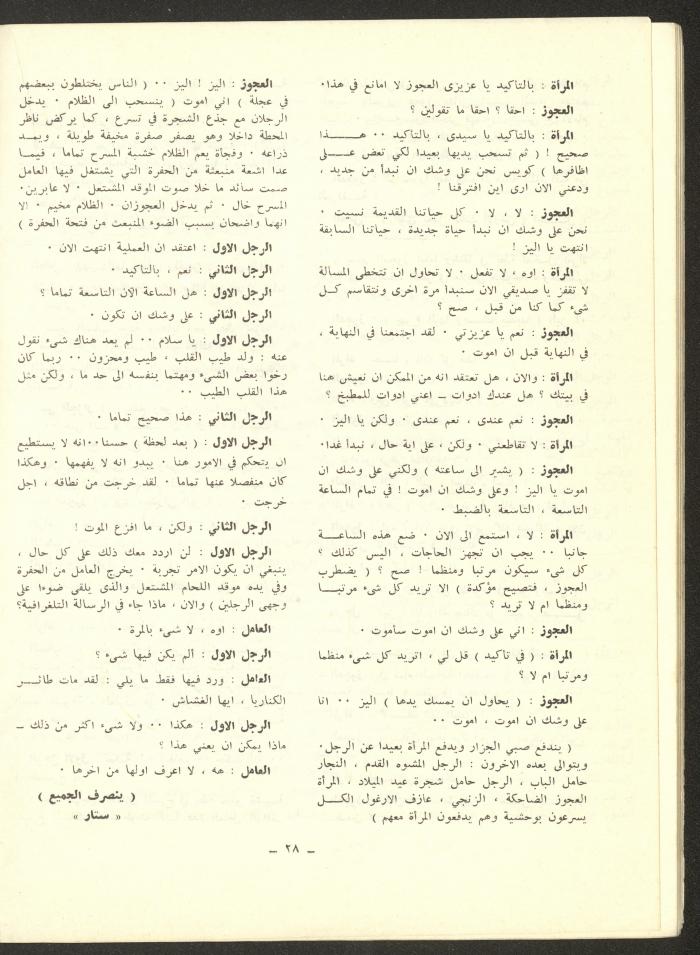 المرأة : بالتاكيد يا عزيزى العجوز لا امانع في هذا٠
العجوز : احقا ؟ احقا ما تقولين ؟
المرأة : بالتاكيد يا سيدى ، بالتاكيد ٠٠ هــــذا
صحيح ! ( ثم تسحب يديها بعيدا لكي تعض عـــلى
اظافرها ) كويس نحن على وشك ان نبدأ من جديد ،
ودعني الان ارى اين افترقنا !
العجوز : لا ، لا ٠ كل حياتنا القديمة نسيت ٠
نحن على وشك ان نبدأ حياة جديدة ، حياتنا السابقة
انتهت يا اليز !
المرأة : اوه ، لا تفعل ٠ لا تحاول ان تتخطى المسالة
لا تقفز يا صديقي الان سنبدأ مرة اخرى ونتقاسم كــل
شىء كما كنا من قبل ، صح ؟
العجوز : نعم يا عزيزتي ٠ لقد اجتمعنا في النهاية ،
في النهاية قبل ان اموت ٠
المرأة : والان ، هل تعتقد انه من الممكن ان نعيش هنا
في بيتك ؟ هل عندك ادوات ــ اعني ادوات للمطبخ ؟
العجوز : نعم عندى ، نعم عندى ٠ ولكن يا اليز ٠
المرأة : لا تقاطعني ٠ ولكن ، على اية حال ، نبدأ غدا٠
العجوز : ( يشير الى ساعته ) ولكني على وشك ان
اموت يا اليز ! وعلى وشك ان اموت ! في تمام الساعة
التاسعة ، التاسعة بالضبط ٠
المرأة : لا ، استمع الى الان ٠ ضع هذه الساعــة
جانبا ٠٠ يجب ان تجهز الحاجات ، اليس كذلك ؟
كل شىء سيكون مرتبا ومنظما ! صح ؟ ( يضطرب
العجوز ، فتصيح مؤكدة ) الا تريد كل شىء مرتبــا
ومنظما ام لا تريد ؟
العجوز : اني على وشك ان اموت سأموت ٠
المرأة : ( في تأكيد ) قل لي ، اتريد كل شىء منظما
ومرتبا ام لا ؟
العجوز : ( يحاول ان يمسك يدها ) اليز ٠٠ انا
على وشك ان اموت ، اموت ٠٠
( يندفع صبي الجزار ويدفع المرأة بعيدا عن الرجل٠
ويتوالى بعده الاخرون : الرجل المشوه القدم ، النجار
حامل الباب ، الرجل حامل شجرة عيد الميلاد ، المرأة
العجوز الضاحكة ، الزنجي ، عازف الارغول الكــل
يسرعون بوحشية وهم يدفعون المرأة معهم )
العجوز : اليز ! اليز ٠٠ ( الناس يختلطون ببعضهم
في عجلة ) اني اموت ( ينسحب الى الظلام ٠ يدخل
الرجلان مع جذع الشجرة في تسرع ، كما يركض ناظر
المحطة داخلا وهو يصفر صفرة مخيفة طويلة ، ويمــد
ذراعه ٠ وفجأة يعم الظلام خشبة المسرح تماما ، فيمــا
عدا اشعة منبعثة من الحفرة التي يشتغل فيها العامل
صمت سائد ما خلا صوت الموقد المشتعل ٠ لا عابرين٠
المسرح خال ٠ ثم يدخل العجوزان ٠ الظلام مخيم ٠ الا
انهما واضحان بسبب الضوء المنبعث من فتحة الحفرة )
الرجل الاول : اعتقد ان العملية انتهت الان ٠
الرجل الثاني : نعم ، بالتاكيد ٠
الرجل الاول : هل الساعة الآن التاسعة تماما ؟
الرجل الثاني : على وشك ان تكون ٠
الرجل الاول : يا سلام ٠٠ لم يعد هناك شىء نقول
عنه : ولد طيب القلب ، طيب ومحزون ٠٠ ربما كان
رخوا بعض الشىء ومهتما بنفسه الى حد ما ، ولكن مثل
هذا القلب الطيب ٠٠
الرجل الثاني : هذا صحيح تماما ٠
الرجل الاول : ( بعد لحظة ) حسنا٠٠انه لا يستطيع
ان يتحكم في الامور هنا ٠ يبدو انه لا يفهمها ٠ وهكذا
كان منفصلا عنها تماما ٠ لقد خرجت من نطاقه ، اجل
خرجت ٠
الرجل الثاني : ولكن ، ما افزع الموت !
الرجل الاول : لن اردد معك ذلك على كل حال ،
ينبغي ان يكون الامر تجربة ٠ يخرج العامل من الحفرة
وفي يده موقد اللحام المشتعل والذى يلقى ضوءا على
وجهى الرجلين ) والان ، ماذا جاء في الرسالة التلغرافية؟
العامل : اوه ، لا شىء بالمرة ٠
الرجل الاول : ألم يكن فيها شىء ؟
العامل : ورد فيها فقط ما يلي : لقد مات طائــر
الكناريا ، ايها الغشاش ٠
الرجل الاول : هكذا ٠٠ ولا شىء اكثر من ذلك ــ
ماذا يمكن ان يعني هذا ؟
العامل : هه ، لا اعرف اولها من اخرها ٠
( ينصرف الجميع )
« ستار »
ــ ٢٨ ــ